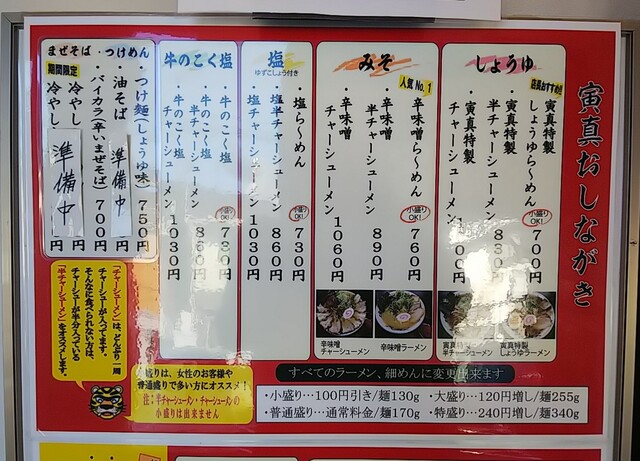 寅真おしながき
しょうゆ
店長おすすめ!!
寅真特製
しょうゆら〜めん
小盛り
OK!
700円
寅真特製
半チャーシューメン
830円
寅真特製
チャーシューメン
みそ
人気No.1
辛味噌ら〜めん
小盛り
OK!
760円
辛味噌
半チャーシューメン
890円
辛味噌
チャーシューメン
1060円
塩
ゆずこしょう付き
・塩ら〜めん
小盛り
OK!
730円
・塩半チャーシューメン
860円
・塩チャーシューメン
1030円
牛のこく塩
・牛のこく塩
小盛り
OK!
730円
・牛のこく塩
半チャーシューメン
860円
・牛のこく塩
チャーシューメン
1030円
まぜそば・つけめん
・つけ麺(しょうゆ味)
750円
・油そば
準備中
円
・バイカラ(辛いまぜそば)
700円
期間限定
・冷やし
準備中
円
・冷やし
円
辛味噌
チャーシューメン
辛味噌ラーメン
寅真特製
半チャーシューメン
寅真特製
しょうゆラーメン
「チャーシューメン」は、どんぶり一周
チャーシューが入ってます。
そんなに食べられない方は、
チャーシューが半分入っている
「半チャーシューメン」
をオススメします。
小盛りは、女性のお客様や
普通盛りで多い方にオススメ!
注:半チャーシューメン・チャーシューメンの
小盛りは出来ません
すべてのラーメン、細めんに変更出来ます
・小盛り…100円引き/麺130g
・大盛り…120円増し/麺255g
・普通盛り…通常料金/麺170g
・特盛り…240円増し/麺340g